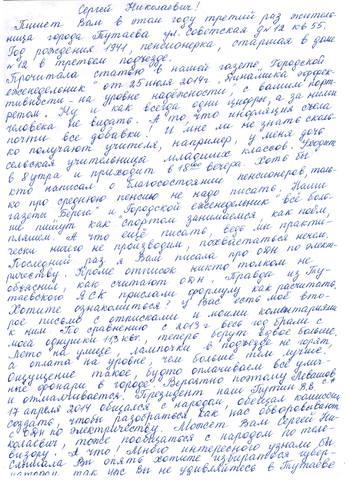 Сергей Николаевич!
Пишет Вам в этом году третий раз житель-
ница города Тутаева ул. Советская д№12 кв 55.
Год рождения 1941, пенсионерка, старшая в доме
№12 в третьем подъезде.
Прочитала статью в нашей газете „Городской
еженедельник" от 25 июля 2014г. „Динамика эффек-
тивности - на уровне надёжности", с вашим порт-
ретом. Ну и как всегда одни цифры, а за ними
человека не видать. А то, что инфляция съела
почти все добавки! И мне ли не знать сколь-
ко получают учителя, например, у меня дочь
сельская учительница младших классов. Уходит
в 8 утра и приходит в 18 вечера. Хоть бы
кто написал о благосостоянии пенсионеров, толь-
ко про среднюю пенсию не надо писать. Наши
газета „Берега" и „Городской еженедельник" всё боль-
ше пишут как спортом занимаемся, как поём,
пляшем. А что ещё писать, ведь мы практи-
чески ничего не производим, похвастаться нечем.
Последний раз я Вам писала про ОДН по элект-
ричеству. Кроме отписок никто толком не
объяснил, как считают ОДН. Правда из Ту-
таевского ЯСК прислали формулу как расчитать.
Хотите ознакомиться у Вас есть моё вто-
рое письмо с отписками и моими комментариями
к ним. По сравнению с 2013 г. весь год брали с
моей однушки 113 квт. теперь берут вдвое больше.
Лето на улице лампочки в подъезде не горят,
а оплата на уровне, чем больше тем лучше.
Ощущение такое, будто оплачиваем все улич-
ные фонари в городе. Вероятно поэтому Левашов
и отмалчивается. Президент наш Путин В.В.
17 апреля 2014 общался с народом обещал комиссию
создать, чтобы разобраться как нас обворовывают
с ОДН по электричеству. Может Вам Сергей Ни-
колаевич, тоже пообщаться с народом по теле-
визору. А что! Много интересного узнали бы.
Слышала Вы опять хотите избираться губер-
так что Вы не удивляйтесь в Тутаеве